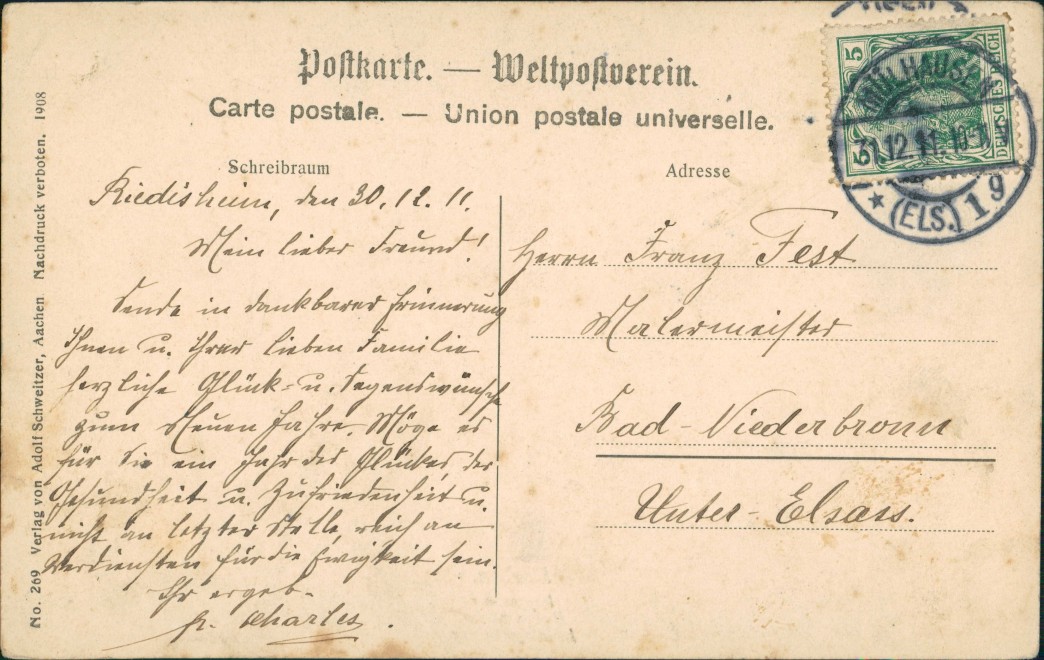 Postkarte. — Weltpostverein.
Carte postale. — Union postale universelle.
Schreibraum
Adresse
Riedisheim, den 30.12.11.
Mein lieber Freund!
Sende in dankbarer Erinnerung
Ihnen u. Ihrer lieben Familie
herzliche Glück- u. Segenswünsche
zum Neuen Jahre. Möge es
für Sie ein Jahr des Glückes der
Gesundheit u. Zufriedenheit u.
nicht an letzter Stelle reich an
Verdiensten für die Ewigkeit sein.
Ihr ergeb.
Charles.
Herrn Franz Fest
Malermeister
Bad-Niederbronn
Unter-Elsass.
5
5
DEUTSCHES REICH
MÜLHAUSEN
31.12.11.10-11
★ (ELS.) 1 g
No. 269 Verlag von Adolf Schweitzer, Aachen Nachdruck verboten. 1908